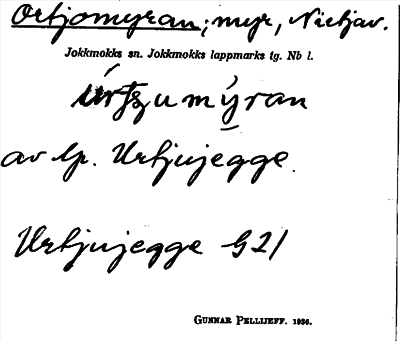 Ortjomyran; myr, Nietjav.
Jokkmokks sn. Jokkmokks lappmarks tg. Nb l.
av lp. Urtjujegge.
Urtjujegge G21
GUNNAR PELLIJEFF. 1936.